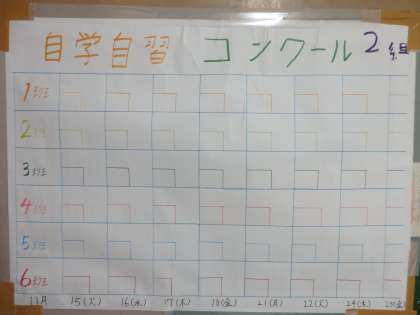 自学自習 コンクール 2組
1班
2班
3班
4班
5班
6班
11月 15(火) 16(水) 17(木) 18(金) 21(月) 22(火) 24(木) 25(金)